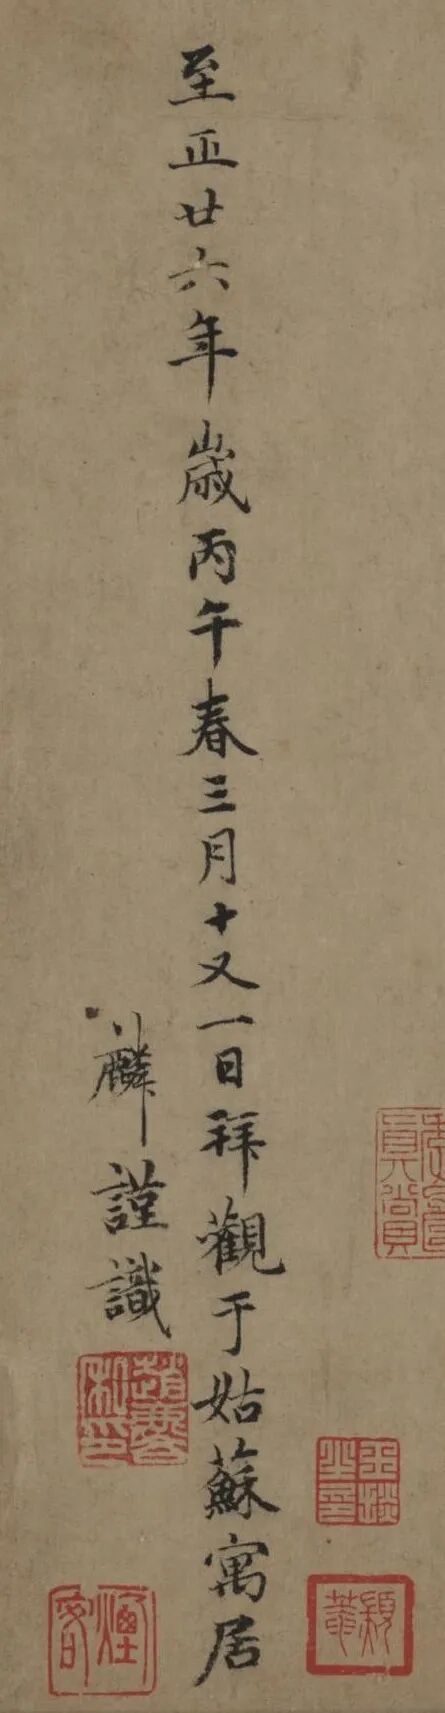 至正廿六年歲丙午春三月十又一日拜觀于姑蘇寓居
麟謹識
趙麐私印